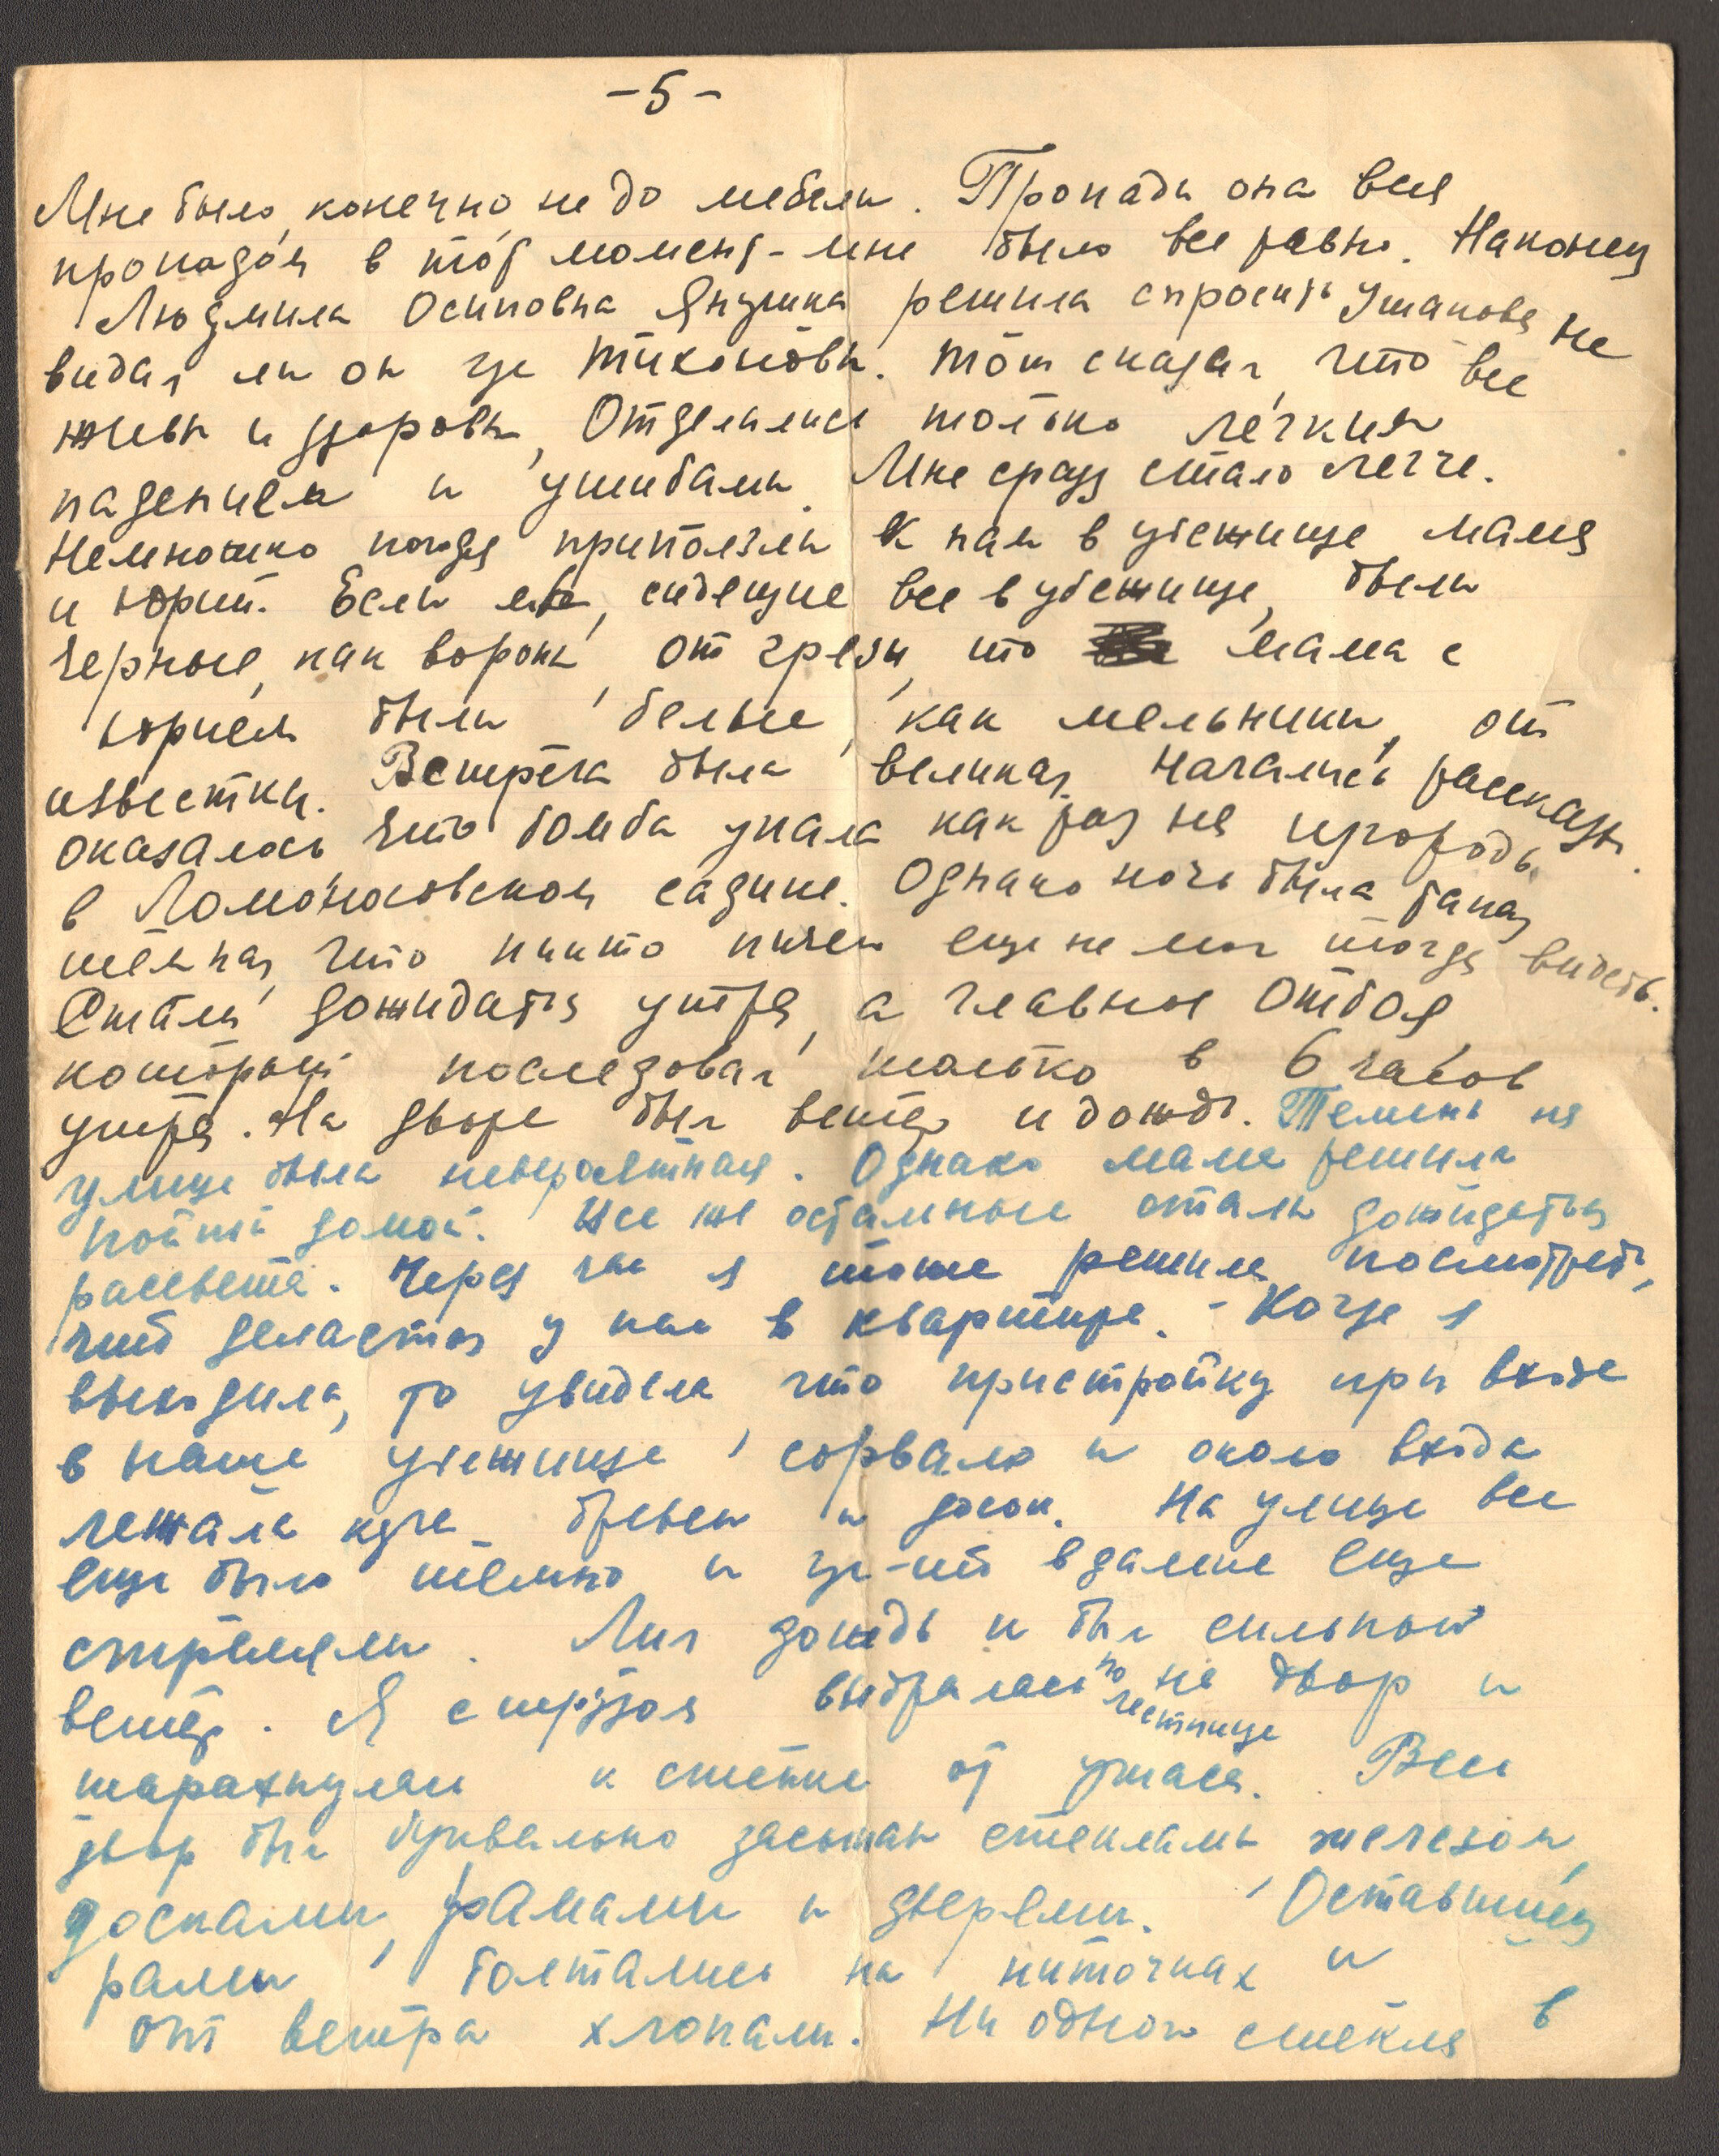 -5-
Мне было, конечно, не до мебели. Пропади она вся
пропадом в тот момент - мне было все равно. Наконец
Людмила Осиповна решила спросить Ушакова не
видал ли он где Тихоновы. Тот сказал, что все
живы и здоровы, Отделались только лёгким
падением и ушибами. Мне сразу стало легче.
Немножко погодя приползли к нам в убежище мама
и Юрий. Если мы, сидящие все в убежище, были
черные, как вороны, от грязи, то мама с
Юрием были белые, как мельники, от
известки. Встреча была великая. Начались рассказы.
Оказалось что бомба упала как раз на
в Ломоносовском садике. Однако ночь была такая
тёмная, что никто ничего еще не мог тогда видеть.
Стали дожидаться утра, а главное отбоя,
который последовал только в 6 часов
утра. На дворе был ветер и дождь. Темень на
улице была невероятная. Однако мама решила
пойти домой. Все же остальные стали дожидаться
рассвета. Через час я тоже решила посмотреть,
что делается у нас в квартире. - Когда я
выходила, то увидела что пристройку при входе
в наше убежище сорвало и около входа
лежала куча бревен и досок. На улице все
еще было тёмно и где-то вдалеке еще
стреляли. Лил дождь и был сильный
ветер. Я с трудом выбралась по лестнице на двор и
шарахнулась к стенке от ужаса. Весь
двор был буквально засыпан стеклами, железом,
досками, рамами и дверями. Оставшиеся
рамы болтались на ниточках и
от ветра хлопали. Ни одного стекла в